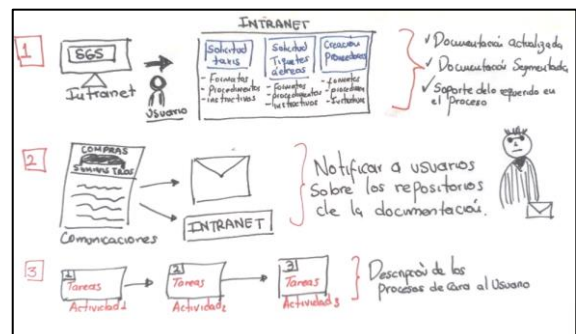 1
SGS
Intranet
Usuario
INTRANET
Solicitud
taxis
- Formatos
- Procedimientos
- instructivos
Solicitud
Tiquetes
aéreos
- Formatos
- procedimientos
- instructivos
Creación
Proveedores
- formatos
✓ Documentación actualizada
✓ Documentación Segmentada
✓ Soporte de lo requerido en
el Proceso
2
COMPRAS
SUMINISTROS
Comunicaciones
INTRANET
Notificar a usuarios
Sobre los repositorios
de la documentación.
3
1
Tareas
Actividad 1
2
Tareas
Actividad 2
3
Tareas
Actividad 3
Descripción de los
Procesos de Cara al Usuario